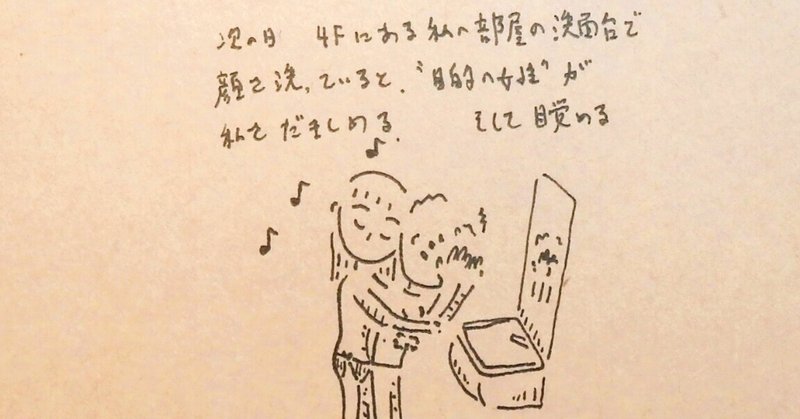 次の日 4Fにある私の部屋の洗面台で
顔を洗っていると、"目的の女性"が
私をだきしめる. そして目覚める